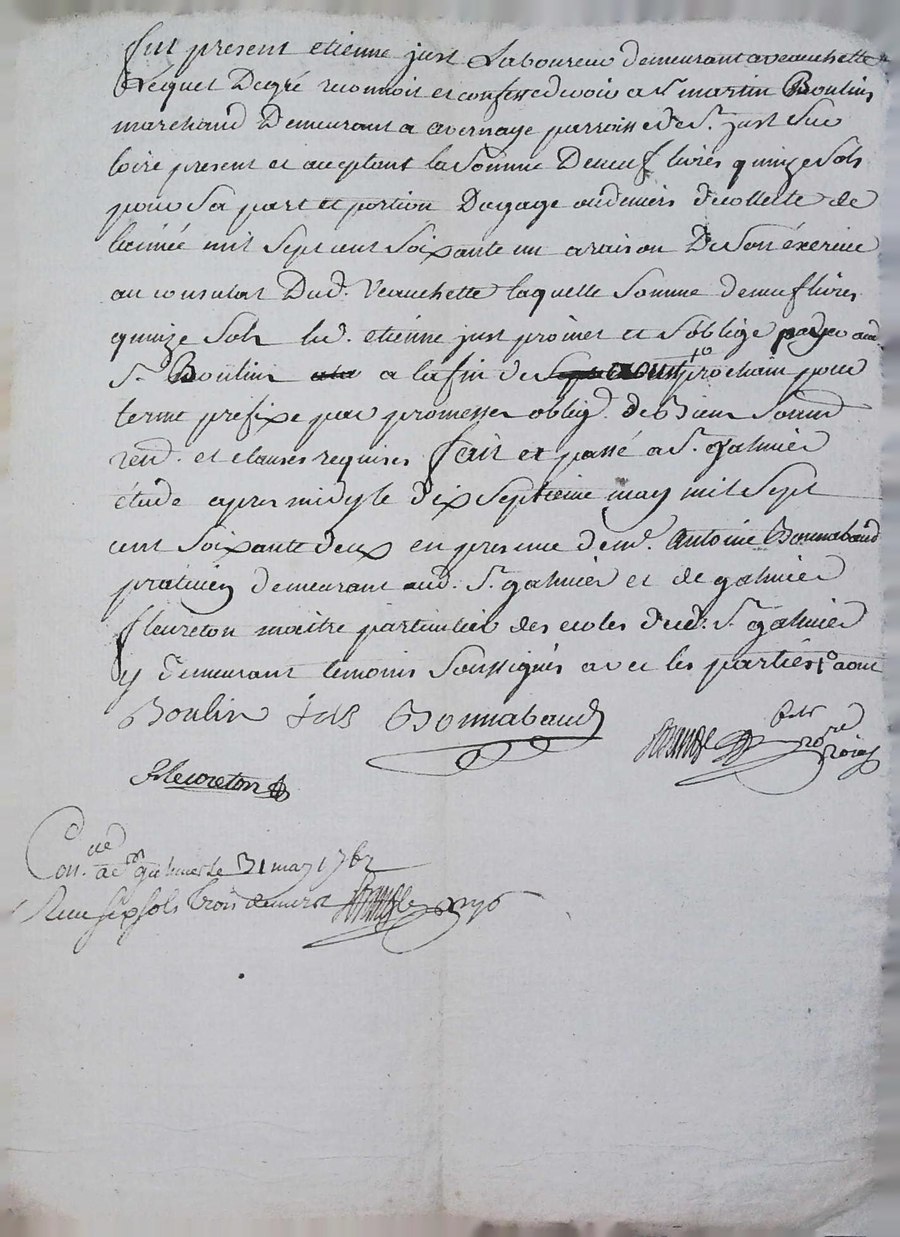 fut present etienne just Laboureur demeurant a veauchette
Lequel De gré reconnoit et confesse devoir a Sr. martin Boulin
marchand Demeurant a avernage parroisse de St. just Sur
loire present et aceptant la Somme De neuf livres quinze Sols
pour Sa part et portion Dagage au deniers decollecte de
lannée mil Sept cent Soixante un a raison De Son éxercice
au consulat Dud. Veauchette laquelle Somme de neuf livres
quinze Sols led. etienne just promet et S'oblige payer aud.
Sr. Boulin a la fin de aoust prochain pour
terme prefixe par promesses oblig. de Biens Soumd
rend. et clauses requises fait et passé a St. galmier
étude apres midy le dix Septieme may mil Sept
cent Soixante deux en presence de md. Antoine Bonnabaud
praticien demeurant aud. St. galmier et de galmier
fleureton maitre particulier des ecoles dud. St. galmier
y demeurant temoins Soussignés avec les parties aout
Boulin Bonnabaud
fleureton
Con. a St galmier le 31 may 1762
Recu Six Sols trois deniers